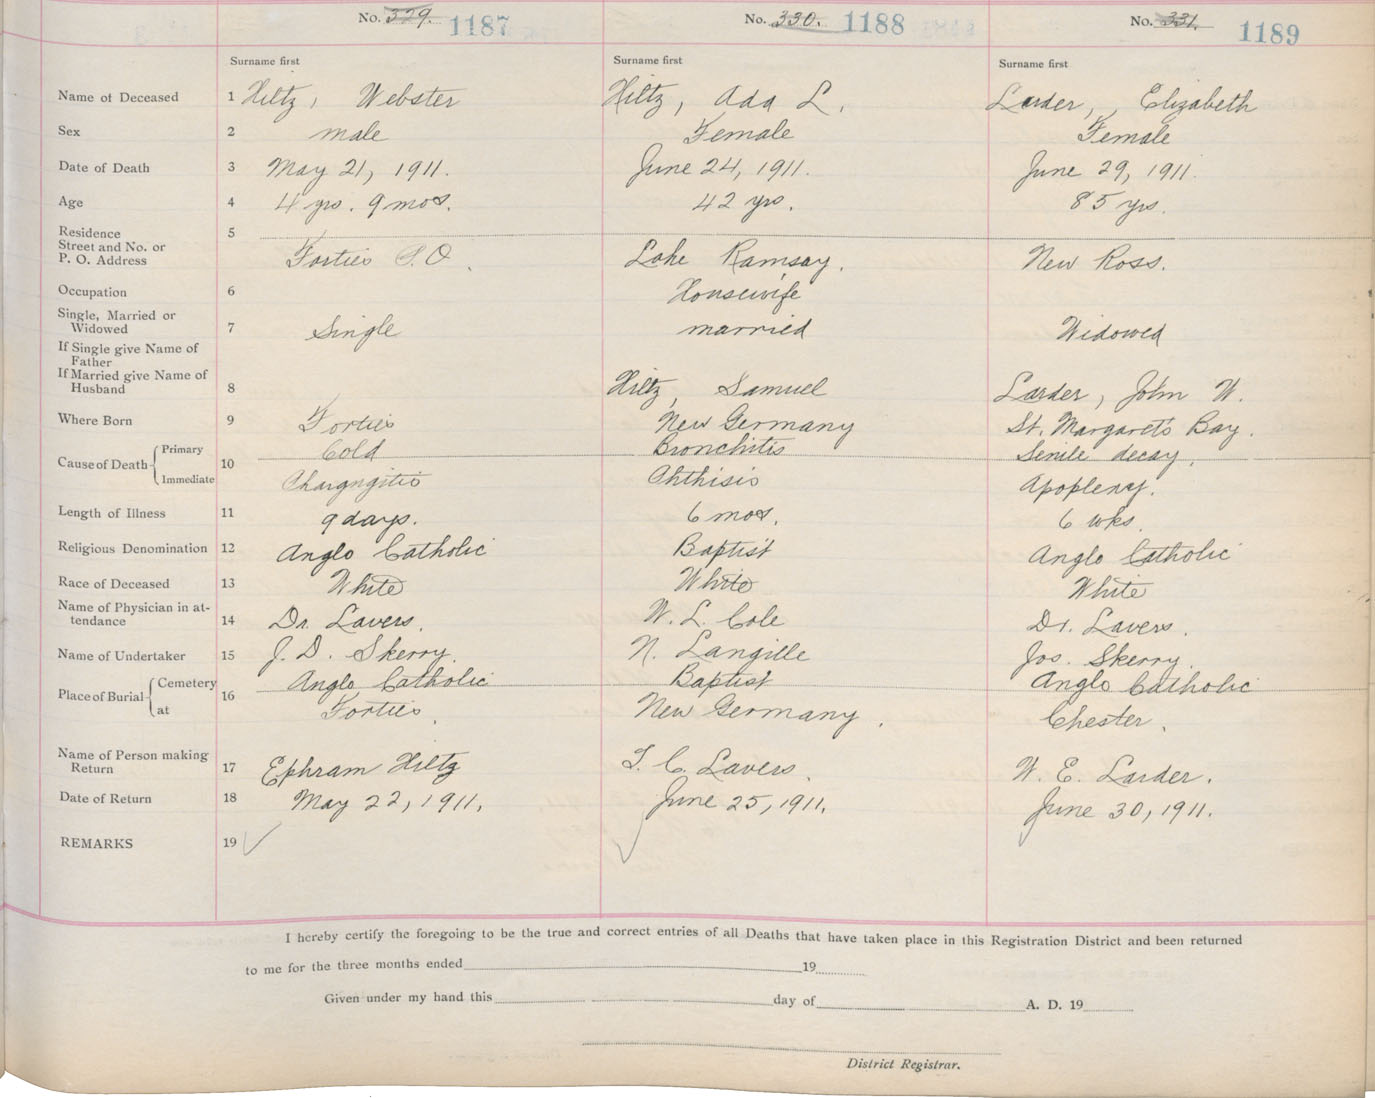 No. 329. 1187 No. 330. 1188 No. 331. 1189
Surname first Surname first Surname first
Name of Deceased 1 Hiltz, Webster Hiltz, Ada L. Larder, Elizabeth
Sex 2 male Female Female
Date of Death 3 May 21, 1911. June 24, 1911. June 29, 1911.
Age 4 4 yrs. 9 mos. 42 yrs. 85 yrs.
Residence 5
Street and No. or
P. O. Address Forties P.O. Lake Ramsay. New Ross.
Occupation 6 Housewife
Single, Married or
Widowed 7 Single married Widowed
If Single give Name of
Father
If Married give Name of
Husband 8 Hiltz, Samuel Larder, John W.
Where Born 9 Forties New Germany St. Margaret's Bay.
Cause of Death Primary 10 Cold Bronchitis Senile decay.
Immediate Pharyngitis Phthisis Apoplexy.
Length of Illness 11 9 days. 6 mos. 6 wks.
Religious Denomination 12 Anglo Catholic Baptist Anglo Catholic
Race of Deceased 13 White White White
Name of Physician in at-
tendance 14 Dr. Lavers. W. L. Cole Dr. Lavers.
Name of Undertaker 15 J. D. Skerry. N. Langille Jos. Skerry.
Place of Burial Cemetery 16 Anglo Catholic Baptist Anglo Catholic
at Forties. New Germany. Chester.
Name of Person making
Return 17 Ephram Hiltz T. C. Lavers. W. E. Larder.
Date of Return 18 May 22, 1911. June 25, 1911. June 30, 1911.
REMARKS 19
I hereby certify the foregoing to be the true and correct entries of all Deaths that have taken place in this Registration District and been returned
to me for the three months ended 19
Given under my hand this day of A. D. 19
District Registrar.